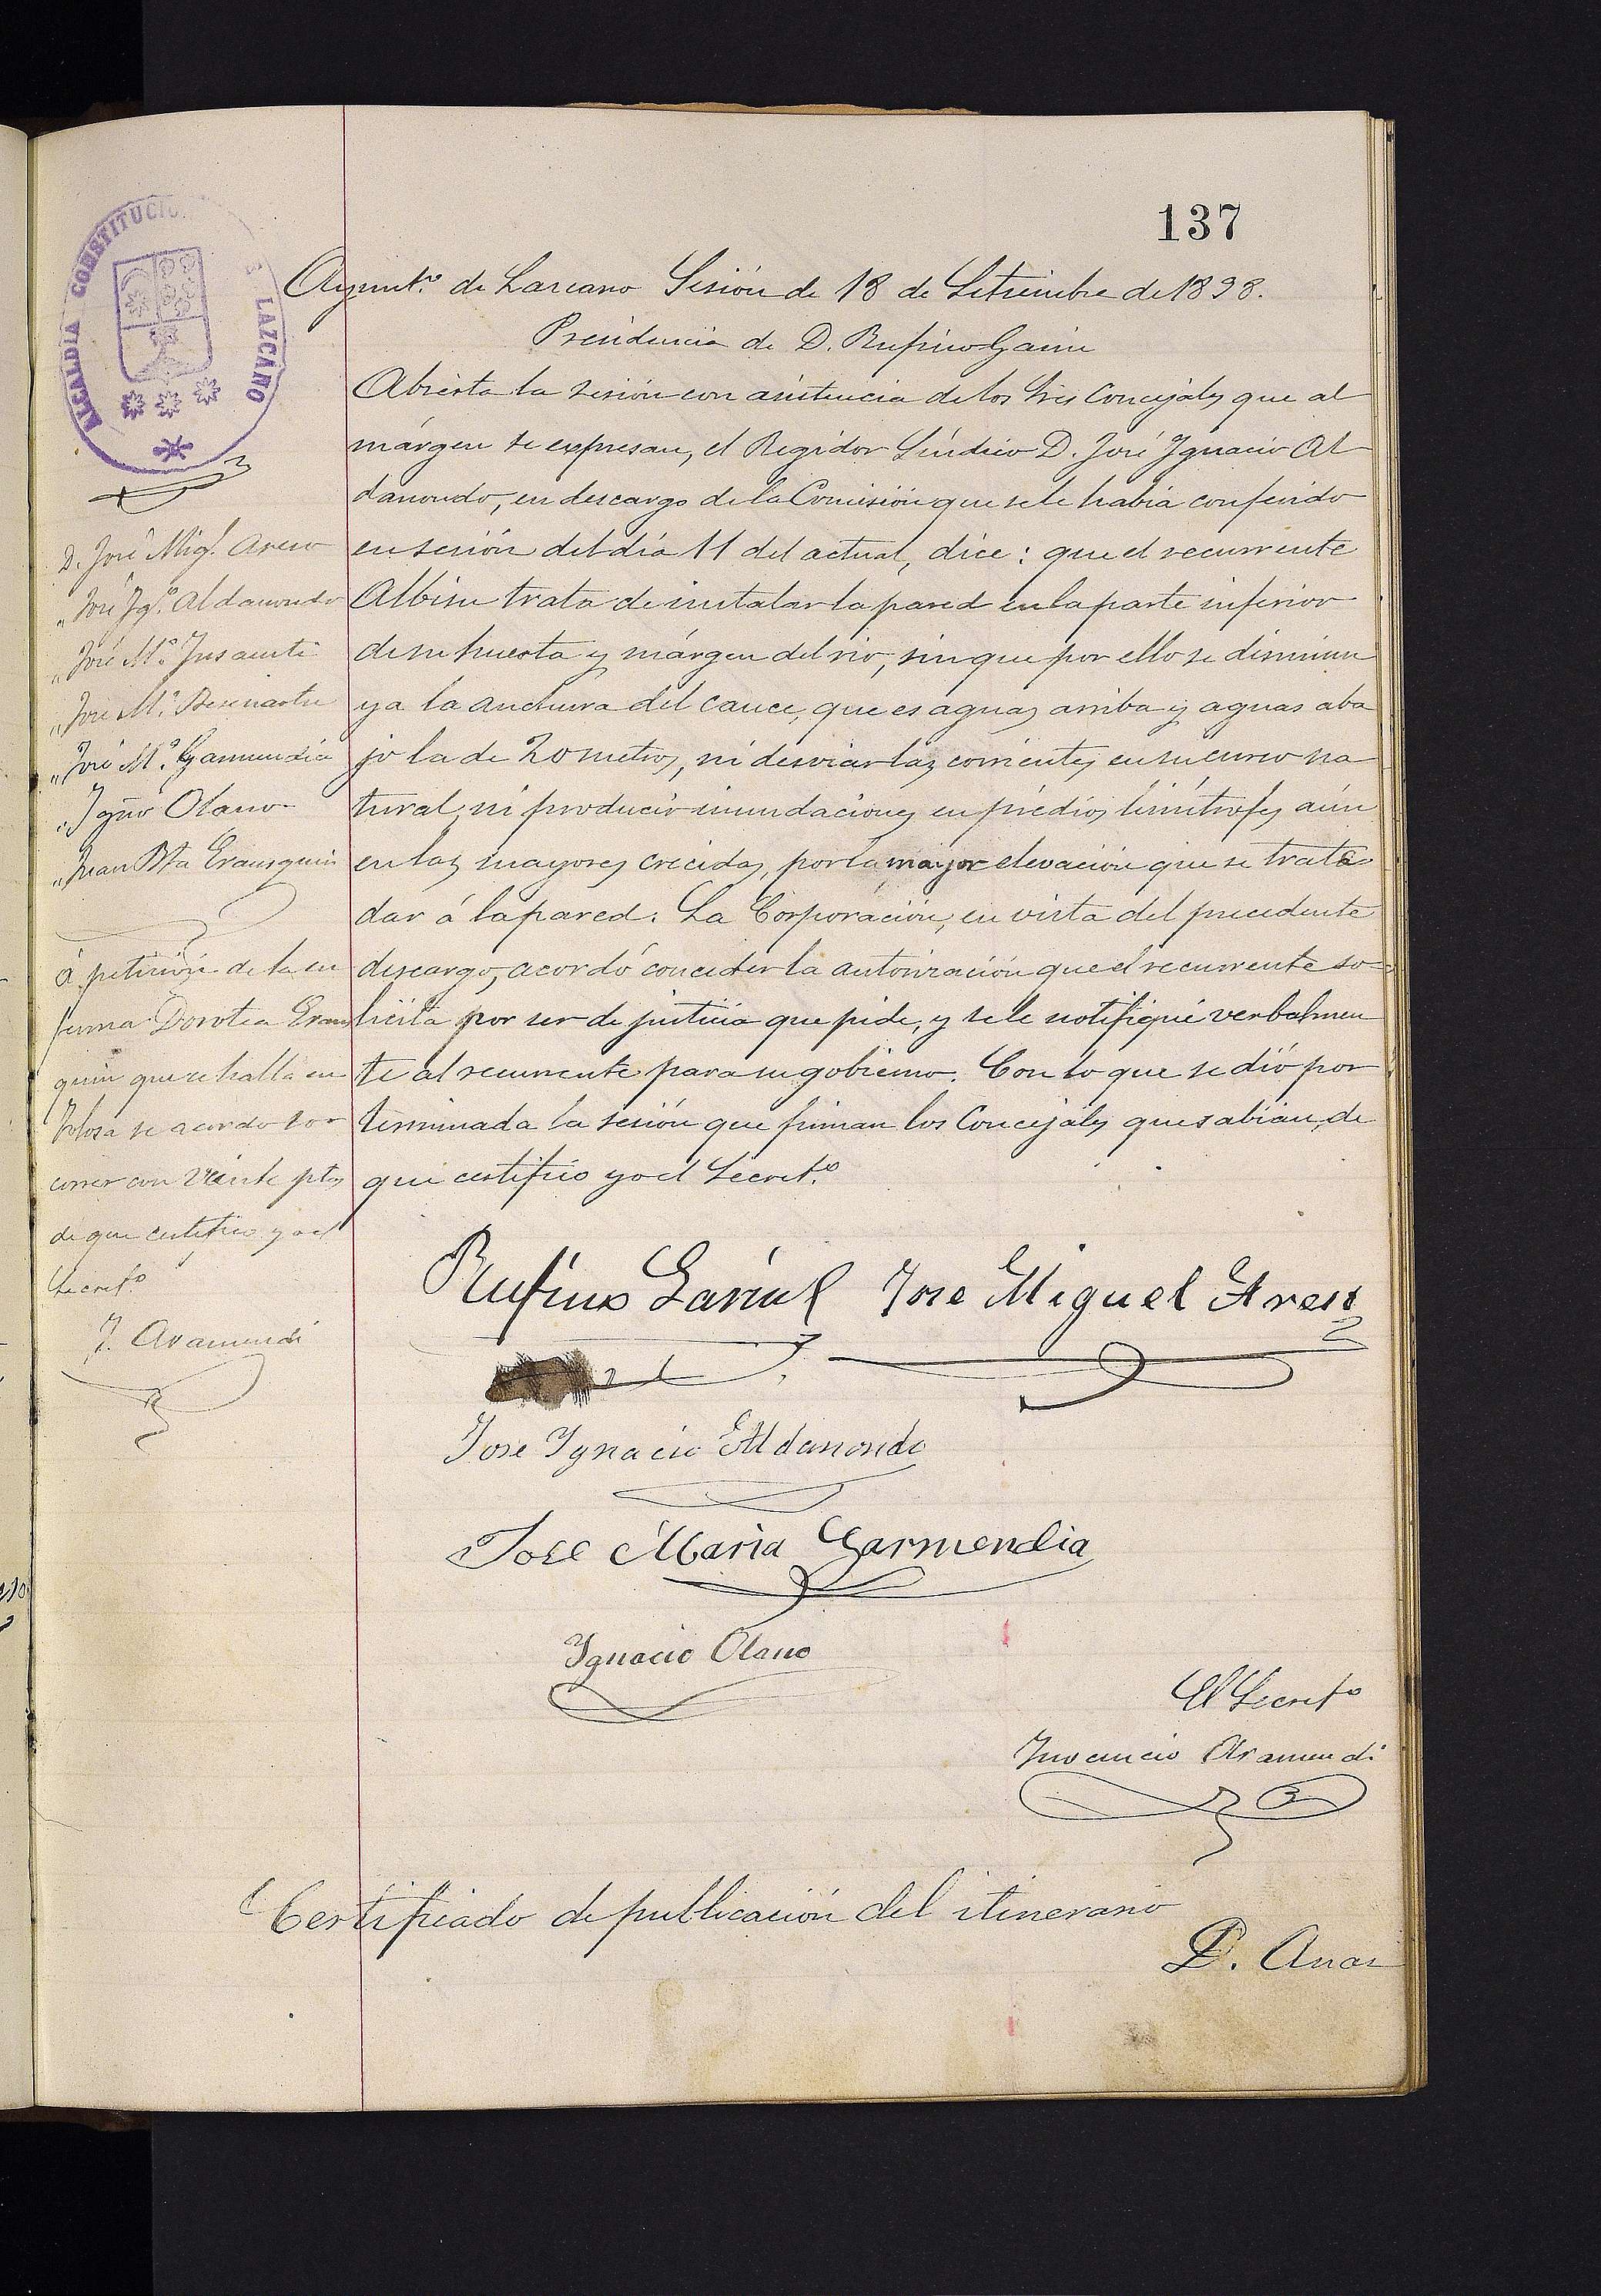 137
ALCALDIA CONSTITUCIO LAZCANO
Ayunt.º de Lazcano Sesión de 18 de Setiembre de 1898.
Presidencia de D. Rufino Garin
Abierta la sesión con asistencia de los Sres Concejales que al
márgen se expresan, el Regidor Síndico D. José Ignacio Al
danondo, en descargo de la Comisión que se le había conferido
en sesión del día 11 del actual, dice: que el recurrente
Albisu trata de instalar la pared en la parte inferior
de su huerta y márgen del rio, sin que por ello se disminu
ya la anchura del cauce, que es aguas arriba y aguas aba
jo la de 20 metros, ni desviar las corrientes en su curso na
tural, ni producir inundaciones en prédios limítrofes aún
en las mayores crecidas, por la mayor elevación que se trata
dar á la pared. La Corporación, en vista del precedente
descargo, acordó conceder la autorización que el recurrente so-
licita por ser de justicia que pide, y se le notifique verbalmen
te al recurrente para su gobierno. Con lo que se dió por
terminada la sesión que firman los Concejales que sabian, de
que certifico yo el Secret.º
D. José Mig.l Areso
„ José Ig.º Aldanondo
„ José M.ª Insausti
„ José M.ª
„ José M.ª Garmendia
„ Ign.º Olano
„ Juan Bta Erausquin
á petición de la en
ferma Dorotea Eraus
quin que se halla en
Tolosa se acordo soc
correr con veinte ptas
de que certifico yo el
Secret.º
I. Aramendi
Rufino Garin
Jose Miguel Areso
Jose Ygnacio Aldanondo
Jose Maria Garmendia
Ygnacio Olano
El Secret.º
Inocencio Aramendi
Certificado de publicación del itinerario
D.